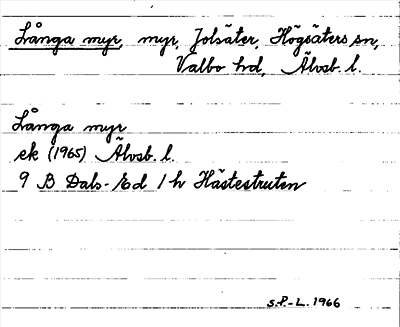 Långa myr, myr, Jolsäter, Högsäters sn,
Valbo hd, Älvsb. l.
Långa myr
ek (1965) Älvsb. l.
9 B Dals-Ed 1 h Hästestruten
S.P.-L. 1966